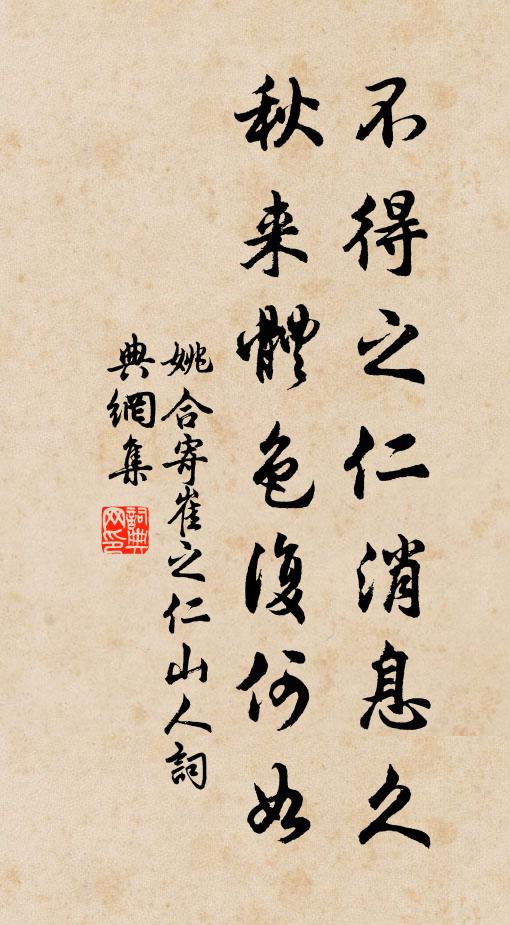 不得之仁消息久
秋来體色復何如
姚合寄崔之仁山人詞
典網集
詞典网印